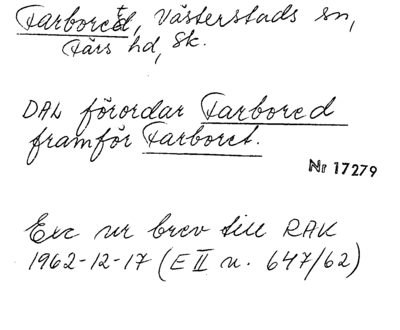 Farboretd, Västerstads sn,
Färs hd, Sk.
DAL förordar Farbored
framför Farboret.
Nr 17279
Exc ur brev till RAK
1962-12-17 (E II u. 647/62)